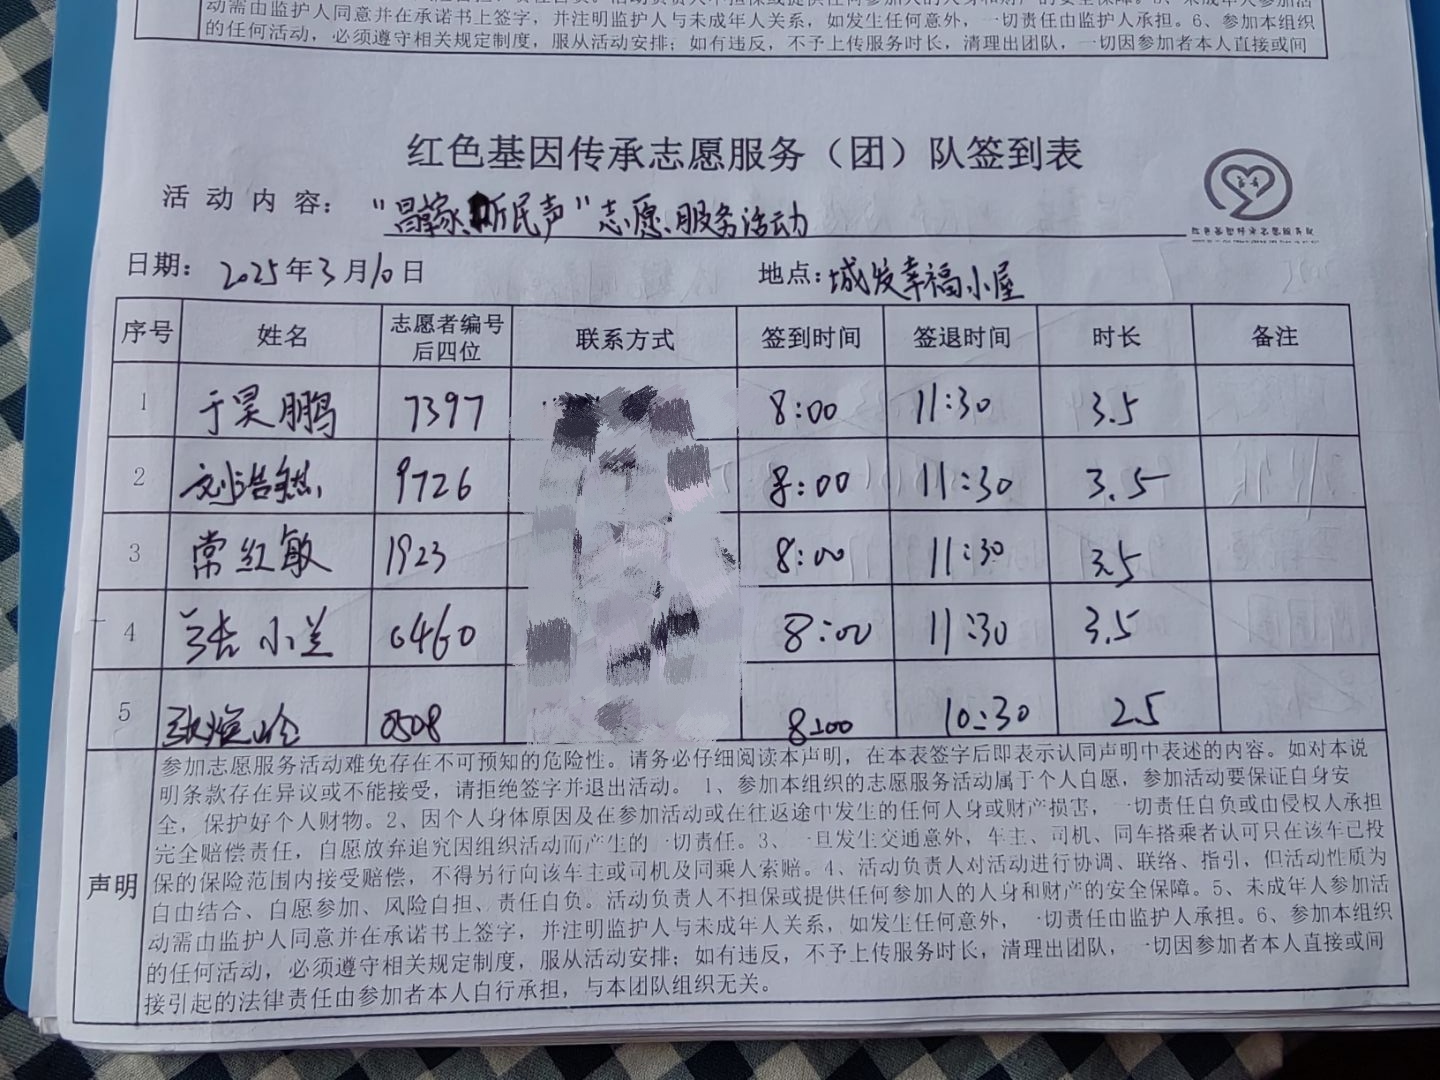 动需由监护人同意并在承诺书上签字，并注明监护人与未成年人关系，如发生任何意外，一切责任由监护人承担。6、参加本组织
的任何活动，必须遵守相关规定制度，服从活动安排；如有违反，不予上传服务时长，清理出团队，一切因参加者本人直接或间
红色基因传承志愿服务（团）队签到表
活动内容： 听民声”志愿服务活动
日期： 2025年3月10日 地点：城发幸福小屋
序号 姓名 志愿者编号后四位 联系方式 签到时间 签退时间 时长 备注
1 于昊鹏 7397 8:00 11:30 3.5
2 刘浩然 9726 8:00 11:30 3.5
3 常红敏 1923 8:00 11:30 3.5
4 张小兰 6460 8:00 11:30 3.5
5 0508 8:00 10:30 2.5
声明
参加志愿服务活动难免存在不可预知的危险性。请务必仔细阅读本声明，在本表签字后即表示认同声明中表述的内容。如对本说
明条款存在异议或不能接受，请拒绝签字并退出活动。 1、参加本组织的志愿服务活动属于个人自愿，参加活动要保证自身安
全，保护好个人财物。2、因个人身体原因及在参加活动或在往返途中发生的任何人身或财产损害，一切责任自负或由侵权人承担
完全赔偿责任，自愿放弃追究因组织活动而产生的一切责任。3、一旦发生交通意外，车主、司机、同车搭乘者认可只在该车已投
保的保险范围内接受赔偿，不得另行向该车主或司机及同乘人索赔。4、活动负责人对活动进行协调、联络、指引，但活动性质为
自由结合、自愿参加、风险自担、责任自负。活动负责人不担保或提供任何参加人的人身和财产的安全保障。5、未成年人参加活
动需由监护人同意并在承诺书上签字，并注明监护人与未成年人关系，如发生任何意外，一切责任由监护人承担。6、参加本组织
的任何活动，必须遵守相关规定制度，服从活动安排；如有违反，不予上传服务时长，清理出团队，一切因参加者本人直接或间
接引起的法律责任由参加者本人自行承担，与本团队组织无关。